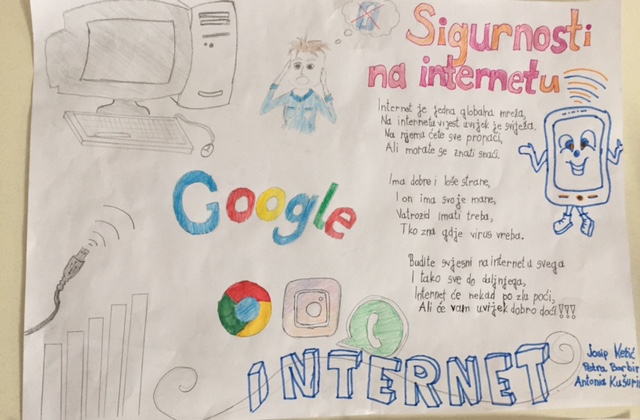 Sigurnosti
na internetu
Internet je jedna globalna mreža,
Na internetu vijest uvijek je svježa,
Na njemu ćete sve pronaći,
Ali morate se znati snaći.
Ima dobre i loše strane,
I on ima svoje mane,
Vatrozid imati treba,
Tko zna gdje virus vreba.
Budite svjesni na internetu svega
I tako sve do daljnjega,
Internet će nekad po zlu poći,
Ali će vam uvijek dobro doći!!!
Google
INTERNET
Josip
Petra Barbir
Antonia